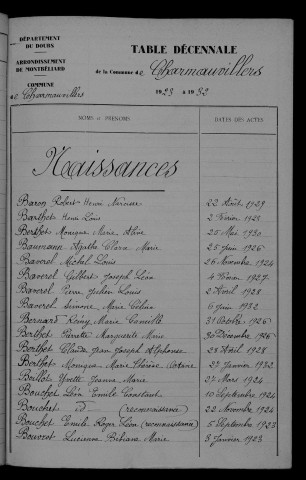 DÉPARTEMENT
DU DOUBS
ARRONDISSEMENT
DE MONTBÉLIARD
COMMUNE
de Charmauvillers
TABLE DÉCENNALE
de la Commune de Charmauvillers
1923 à 1932
NOMS et PRÉNOMS
DATES DES ACTES
Naissances
Baron Robert Henri Narcisse 22 Août 1929
Barthet Henri Louis 2 Février 1921
Berthet Monique Marie 25 Mai 1930
Agathe Clara Marie 25 Juin 1926
Baverel Michel Louis 26 Novembre 1924
Baverel Gilbert Joseph Léon 4 Février 1927
Baverel Pierre Julien Louis 2 Avril 1928
Baverel Simone Marie Céline 6 Juin 1932
Bernard Rémy Marie Camille 31 Octobre 1926
Berthet Pierrette Marguerite Marie 30 Décembre 1926
Berthet Claude Jean Joseph Alphonse 23 Avril 1928
Berthet Monique Marie Thérèse 27 Janvier 1932
Yvette Jeanne Marie 27 Mars 1924
Bouchet Léon Emile Constant 10 Septembre 1924
Bouchet d° (reconnaissance) 22 Novembre 1924
Bouchet Emile Roger Léon (reconnaissance) 5 Septembre 1923
Bouvret Lucienne Bibiane Marie 3 Janvier 1923